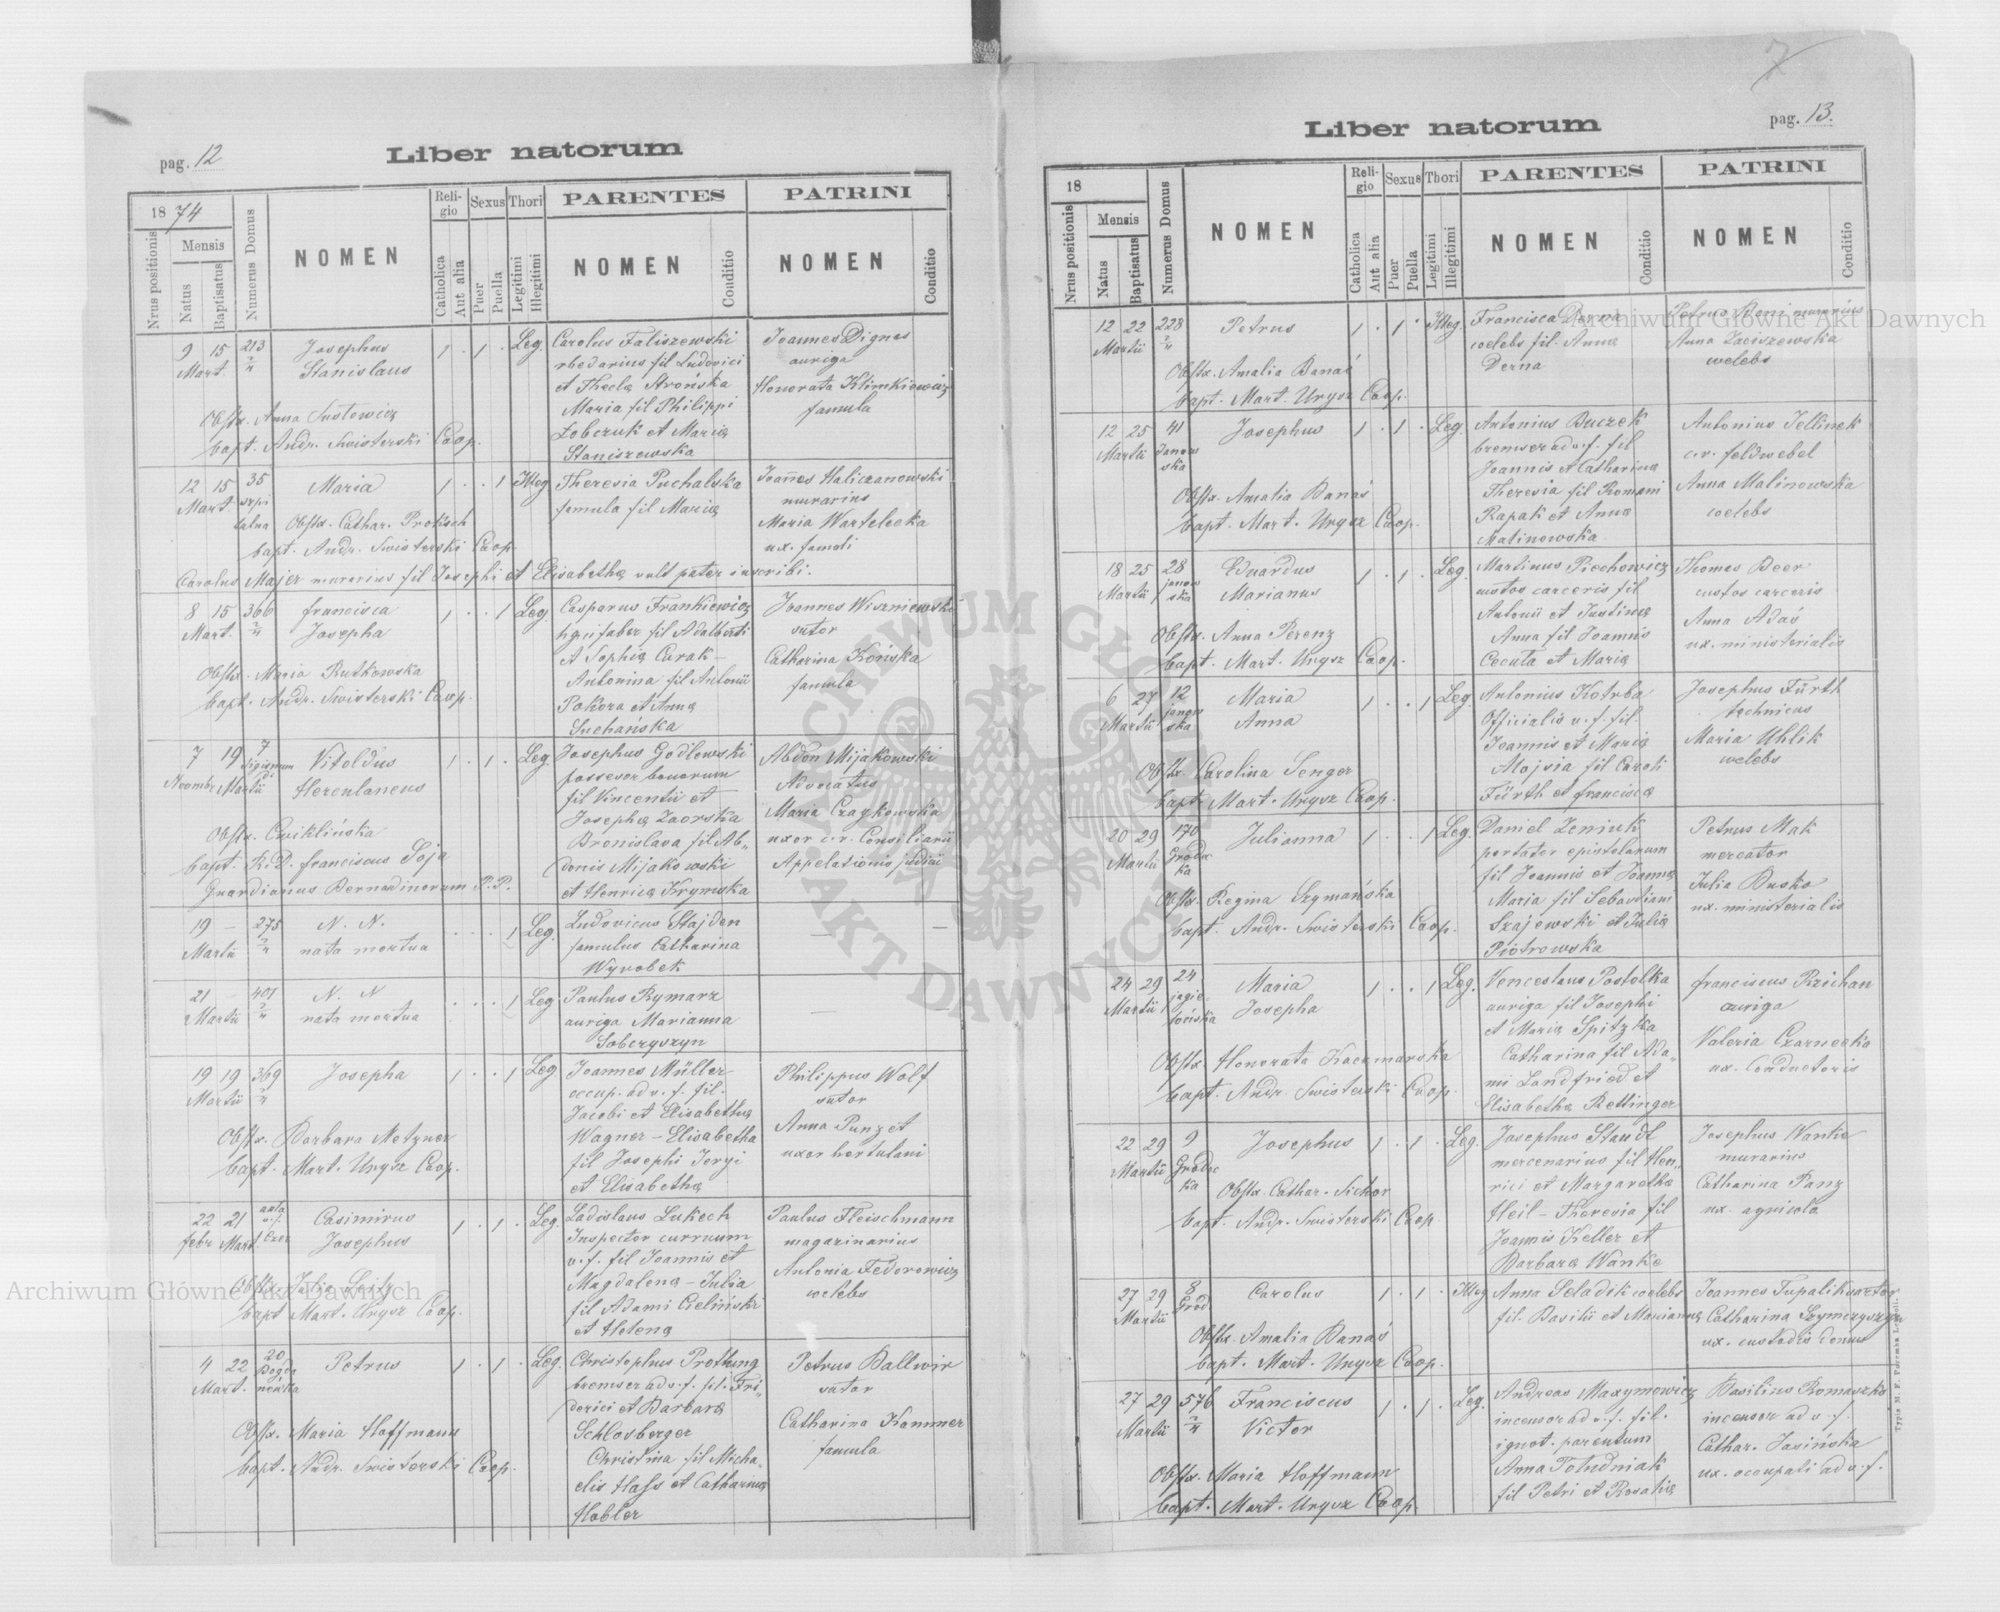 pag. 12
Liber natorum
1874
Nrus positionis
Mensis
Natus
Baptisatus
Numerus Domus
NOMEN
Religio
Catholica
Aut alia
Sexus
Puer
Puella
Thori
Legitimi
Illegitimi
PARENTES
NOMEN
Conditio
PATRINI
NOMEN
Conditio
9 15 213 Josephus 1 · 1 · Leg. Carolus Faliszewski Joannes Dignas
Mart. Stanislaus rhedarius fil Ludovici auriga
et Thecla Strońska Honorata Klimkiewicz
Maria fil Philippi famula
Obstx. Anna
bapt. Andr. Swisterski Coop. et Maria
Staniszewska
12 15 35 Maria 1 · · 1 Illeg Theresia Puchalska Joannes Haliczanowski
Mart. szpi famula fil Maria murarius
talna Obstx. Cathar. Proksch Maria Wartelecka
bapt. Andr. Swisterski Coop. ux. famuli
Carolus Majer murarius fil Josephi et Elisabetha vult pater inscribi.
8 15 366 francisca 1 · · 1 Leg Casparus Frankiewicz Joannes Wiszniewski
Mart. Josepha lignifaber fil Adalberti sutor
et Sophia Curak - Catharina Końska
Obstx. Maria Rutkowska Antonina fil Antonii famula
bapt. Andr. Swisterski Coop. Pokora et Anna
Suchańska
7 19 7 Vitoldus 1 · 1 · Leg Josephus Godlewski Abdon Mijakowski
Novembr Martii Herculaneus possesor bonorum Advocatus
fil Vincentii et Maria Czajkowska
Josepha Zaorska uxor c.r. Consiliarii
Obstx. Cwiklińska Bronislava fil Ab- Appelationis judicii
bapt. R.D. franciscus Soja donis Mijakowski
Guardianus Bernadinorum P.P. et Henrica Krymska
19 — 275 N. N. · · · 1 Leg. Ludovicus Stajden — —
Martii nata mortua famulus Catharina
Wyrobek
21 — 401 N. N · · · 1 Leg Paulus Rymarz —
Martii nata mortua auriga Marianna
Soboryszyn
19 19 369 Josepha 1 · · 1 Leg. Joannes Müller Philippus Wolf
Martii occup. ad v. f. fil. sutor
Jacobi et Elisabetha Anna Punzet
Obstx. Barbara Metzner Wagner - Elisabetha uxor hortulani
bapt. Mart. Urysz Coop. fil Josephi Jeryi
et Elisabetha
22 21 Casimirus 1 · 1 · Leg. Ladislaus Lukech Paulus Fleischmann
febr Mart. Josephus Inspector curruum magazinarius
v. f. fil Joannis et Antonia Fedorowicz
Obstx. Julia Seitz Magdalena - Julia coelebs
bapt Mart. Urysz Coop. fil Adami Cieliński
et Helena
4 22 20 Petrus 1 · 1 · Leg. Christophus Prothung Petrus Ballwir
Mart. Bogda nówka bremser ad v. f. fil. Fri- sutor
derici et Barbara Catharina Kammer
Obstx. Maria Hoffmann Schlosberger famula
bapt. Andr. Swisterski Coop. Christina fil Micha-
elis Hass et Catharina
Hobler
pag. 13.
Liber natorum
18
Nrus positionis
Mensis
Natus
Baptisatus
Numerus Domus
NOMEN
Religio
Catholica
Aut alia
Sexus
Puer
Puella
Thori
Legitimi
Illegitimi
PARENTES
NOMEN
Conditio
PATRINI
NOMEN
Conditio
12 22 228 Petrus 1 · 1 · Illeg. Francisca Derna Petrus Bani murarius
Martii coelebs fil. Anna Anna Laciszewska
Obstx. Amalia Banaś Derna coelebs
bapt. Mart. Urysz Coop.
12 25 41 Josephus 1 · 1 · Leg. Antonius Buczek Antonius Jellinek
Martii Janow ska bremser ad v. f. fil c.r. feldwebel
Joannis et Catharina Anna Malinowska
Obstx. Amalia Banaś Theresia fil Romani coelebs
bapt. Mart. Urysz Coop. Rapak et Anna
Malinowska
18 25 28 Eduardus 1 · 1 · Leg. Martinus Piechowicz Thomas Beer
Martii janow ska Marianus custos carceris fil custos carceris
Antonii et Justina Anna Adaś
Obstx. Anna Perenz Anna fil Joannis ux. ministerialis
bapt. Mart. Urysz Coop. Cecuta et Maria
6 27 12 Maria 1 · · 1 Leg. Antonius Kotrba Josephus Fürth
Martii janow ska Anna Officialis v. f. fil. technicus
Joannis et Maria Maria Uhlik
Obstx Carolina Senger Alojsia fil Caroli coelebs
bapt. Mart. Urysz Coop. Fürth et francisca
20 29 170 Julianna 1 · · 1 Leg. Daniel Zeniuk Petrus Mak
Martii Grodec ka portator epistolarum mercator
fil Joannis et Joanna Julia Busko
Obstx. Regina Szymańska Maria fil Sebastiani ux. ministerialis
bapt. Andr. Swisterski Coop. Szajewski et Julia
Piotrowska
24 29 24 Maria 1 · · 1 Leg. Venceslaus Postolka franciscus Rzichan
Martii jagie lońska Josepha auriga fil Josephi auriga
et Maria Spitzka Valeria Czarnecka
Obstx. Honorata Kaczmarska Catharina fil Ada- ux. Conductoris
bapt. Andr Swisterski Coop. mi Landfried et
Elisabetha Rettinger
22 29 9 Josephus 1 · 1 · Leg. Josephus Staudt Josephus Wanke
Martii Grodec ka mercenarius fil Hen- murarius
Obstx. Cathar. Sichor rici et Margaretha Catharina Panz
bapt. Andr. Swisterski Coop. Heil - Theresia fil ux. agricola
Joannis Keller et
Barbara Wanke
27 29 8 Carolus 1 · 1 · Illeg Anna Seladik coelebs Joannes Tupalik
Martii Grod fil. Basilii et Marianna Catharina Szymczyszyn
Obstx. Amalia Banaś ux. custodis domus
bapt. Mart. Urysz Coop.
27 29 576 Franciscus 1 · 1 · Leg. Andreas Maxymowicz Basilius Romaszko
Martii Victor incensor ad v. f. fil. incensor ad v. f.
ignot. parentum Cathar. Jasińska
Obstx. Maria Hoffmann Anna Poludniak ux. occupati ad v. f.
bapt. Mart. Urysz Coop. fil Petri et Rosalia
Archiwum Główne Akt Dawnych
Archiwum Główne Akt Dawnych
ARCHIWUM GŁÓWNE AKT DAWNYCH